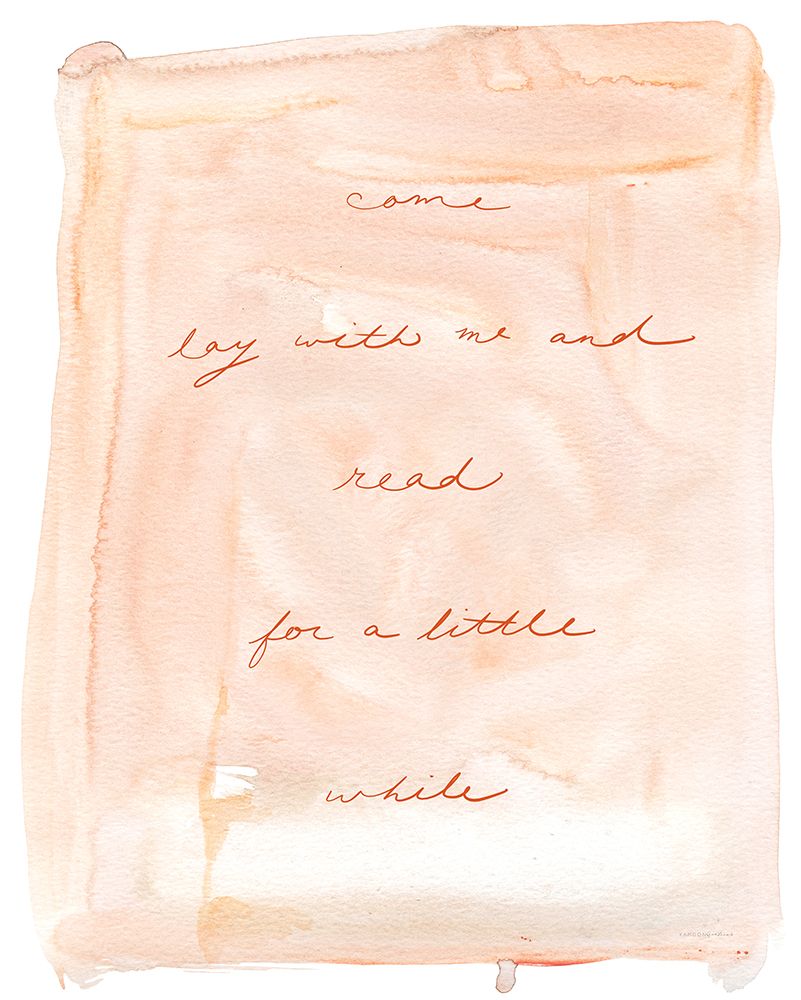 come
lay with me and
read
for a little
while